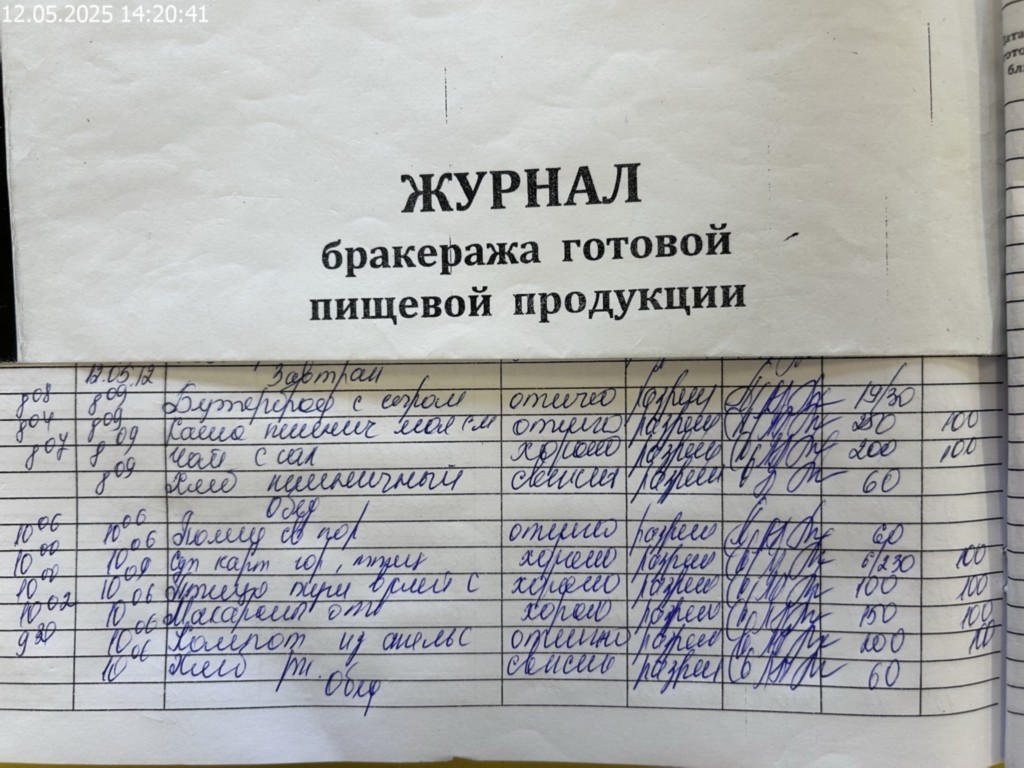 12.05.2025 14:20:41
ЖУРНАЛ
бракеража готовой
пищевой продукции
12.05.12 Завтрак
8 08 8 09 Бутерброд с сыром отично разреш 10/30
8 04 8 09 Каша пшенич мол отично разреш 250 100
8 07 8 09 Чай с сах хорошо разреш 200 100
8 09 Хлеб пшеничный свежий разреш 60
Обед
10 06 10 06 отлично разреш 60
10 00 10 06 Суп карт гор, птиц хорошо разреш 230 100
10 00 10 09 хорошо разреш 100 100
10 02 10 06 Макароны отв хорошо разреш 150 100
9 20 10 06 Компот из апельс отлично разреш 200 100
10 06 Хлеб рж. свежий разреш 60
Обед